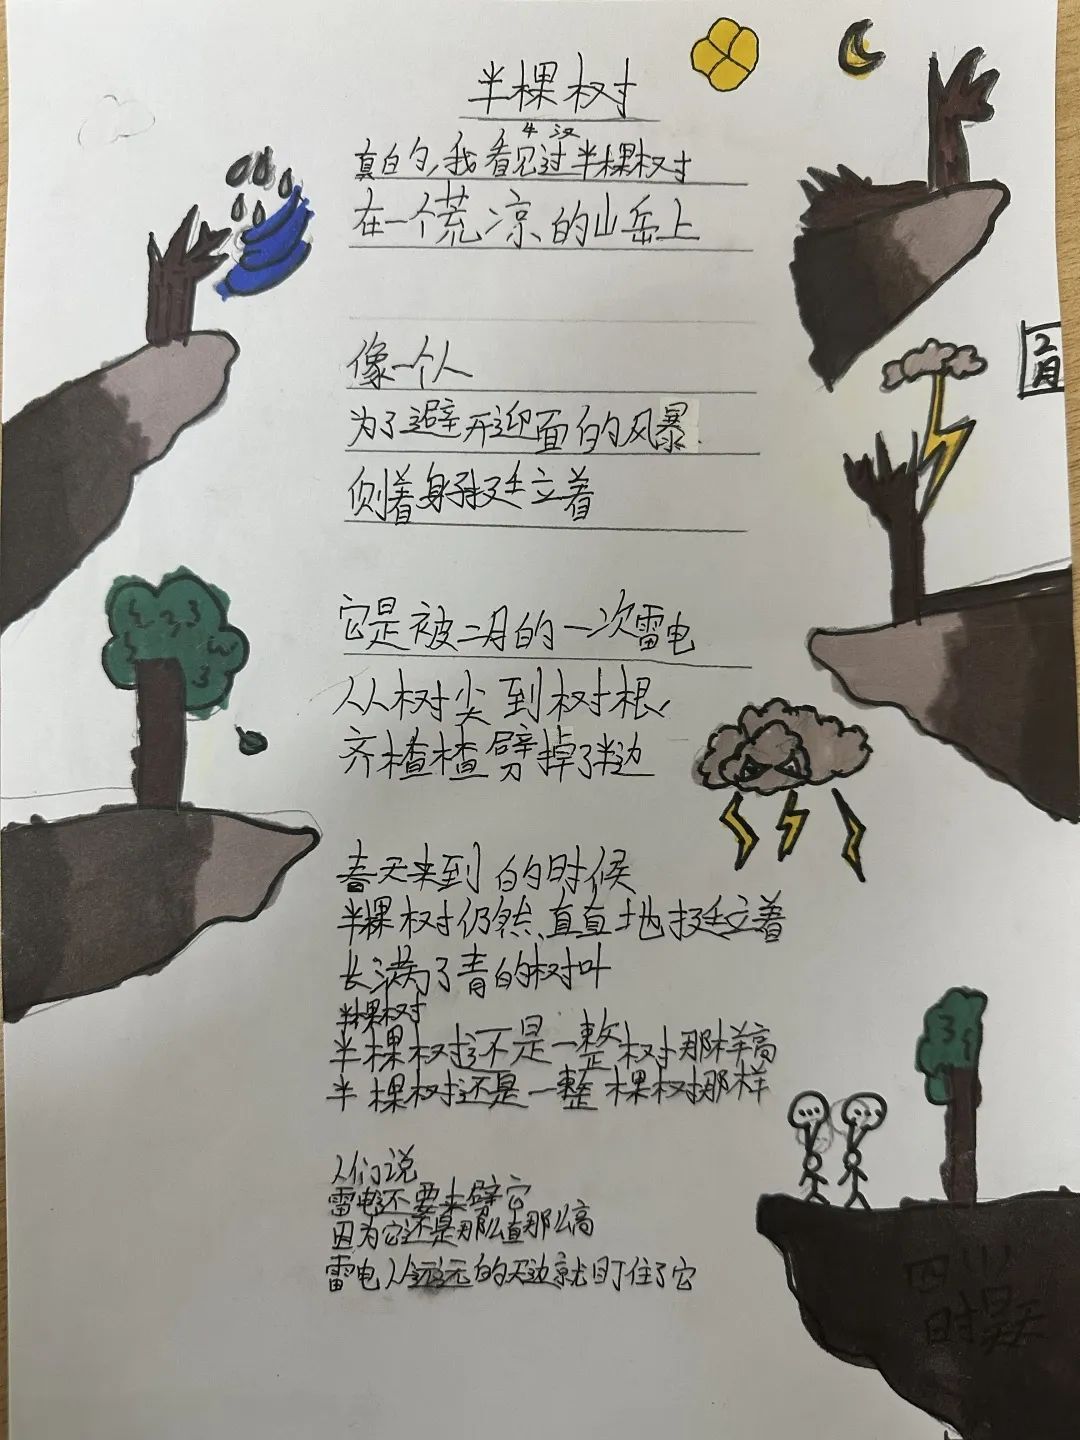 半棵树
半汉
真白的,我看见过半棵树
在一个荒凉的山岳上
像一个人
为了避开迎面的风暴
侧着身子挺立着
它是被二月的一次雷电
从树尖到树根
齐楂楂劈掉了半边
春天来到的时候
半棵树仍然直直地挺立着
长满了青的树叶
半棵树
半棵树还是一整树那样高
半棵树还是一整棵树那样
人们说
雷电还要来劈它
因为它还是那么直那么高
雷电从远远的天边就盯住了它
2月